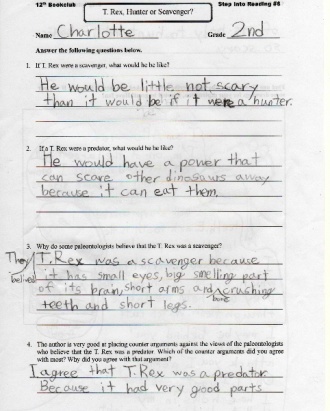 12th Bookclub
Step into Reading #6
T. Rex, Hunter or Scavenger?
Name Charlotte Grade 2nd
Answer the following questions below.
1. If T. Rex were a scavenger, what would he be like?
He would be little not scary
than it would be if it were a hunter.
2. If a T. Rex were a predator, what would he be like?
He would have a power that
can scare other dinosaurs away
because it can eat them.
3. Why do some paleontologists believe that the T. Rex was a scavenger?
They T. Rex was a scavenger because
it has small eyes, big smelling part
of its brain, short arms and crushing
teeth and short legs.
4. The author is very good at placing counter arguments against the views of the paleontologists
who believe that the T. Rex was a predator. Which of the counter arguments did you agree
with most? Why did you agree with that argument?
I agree that T. Rex was a predator
Because it had very good parts